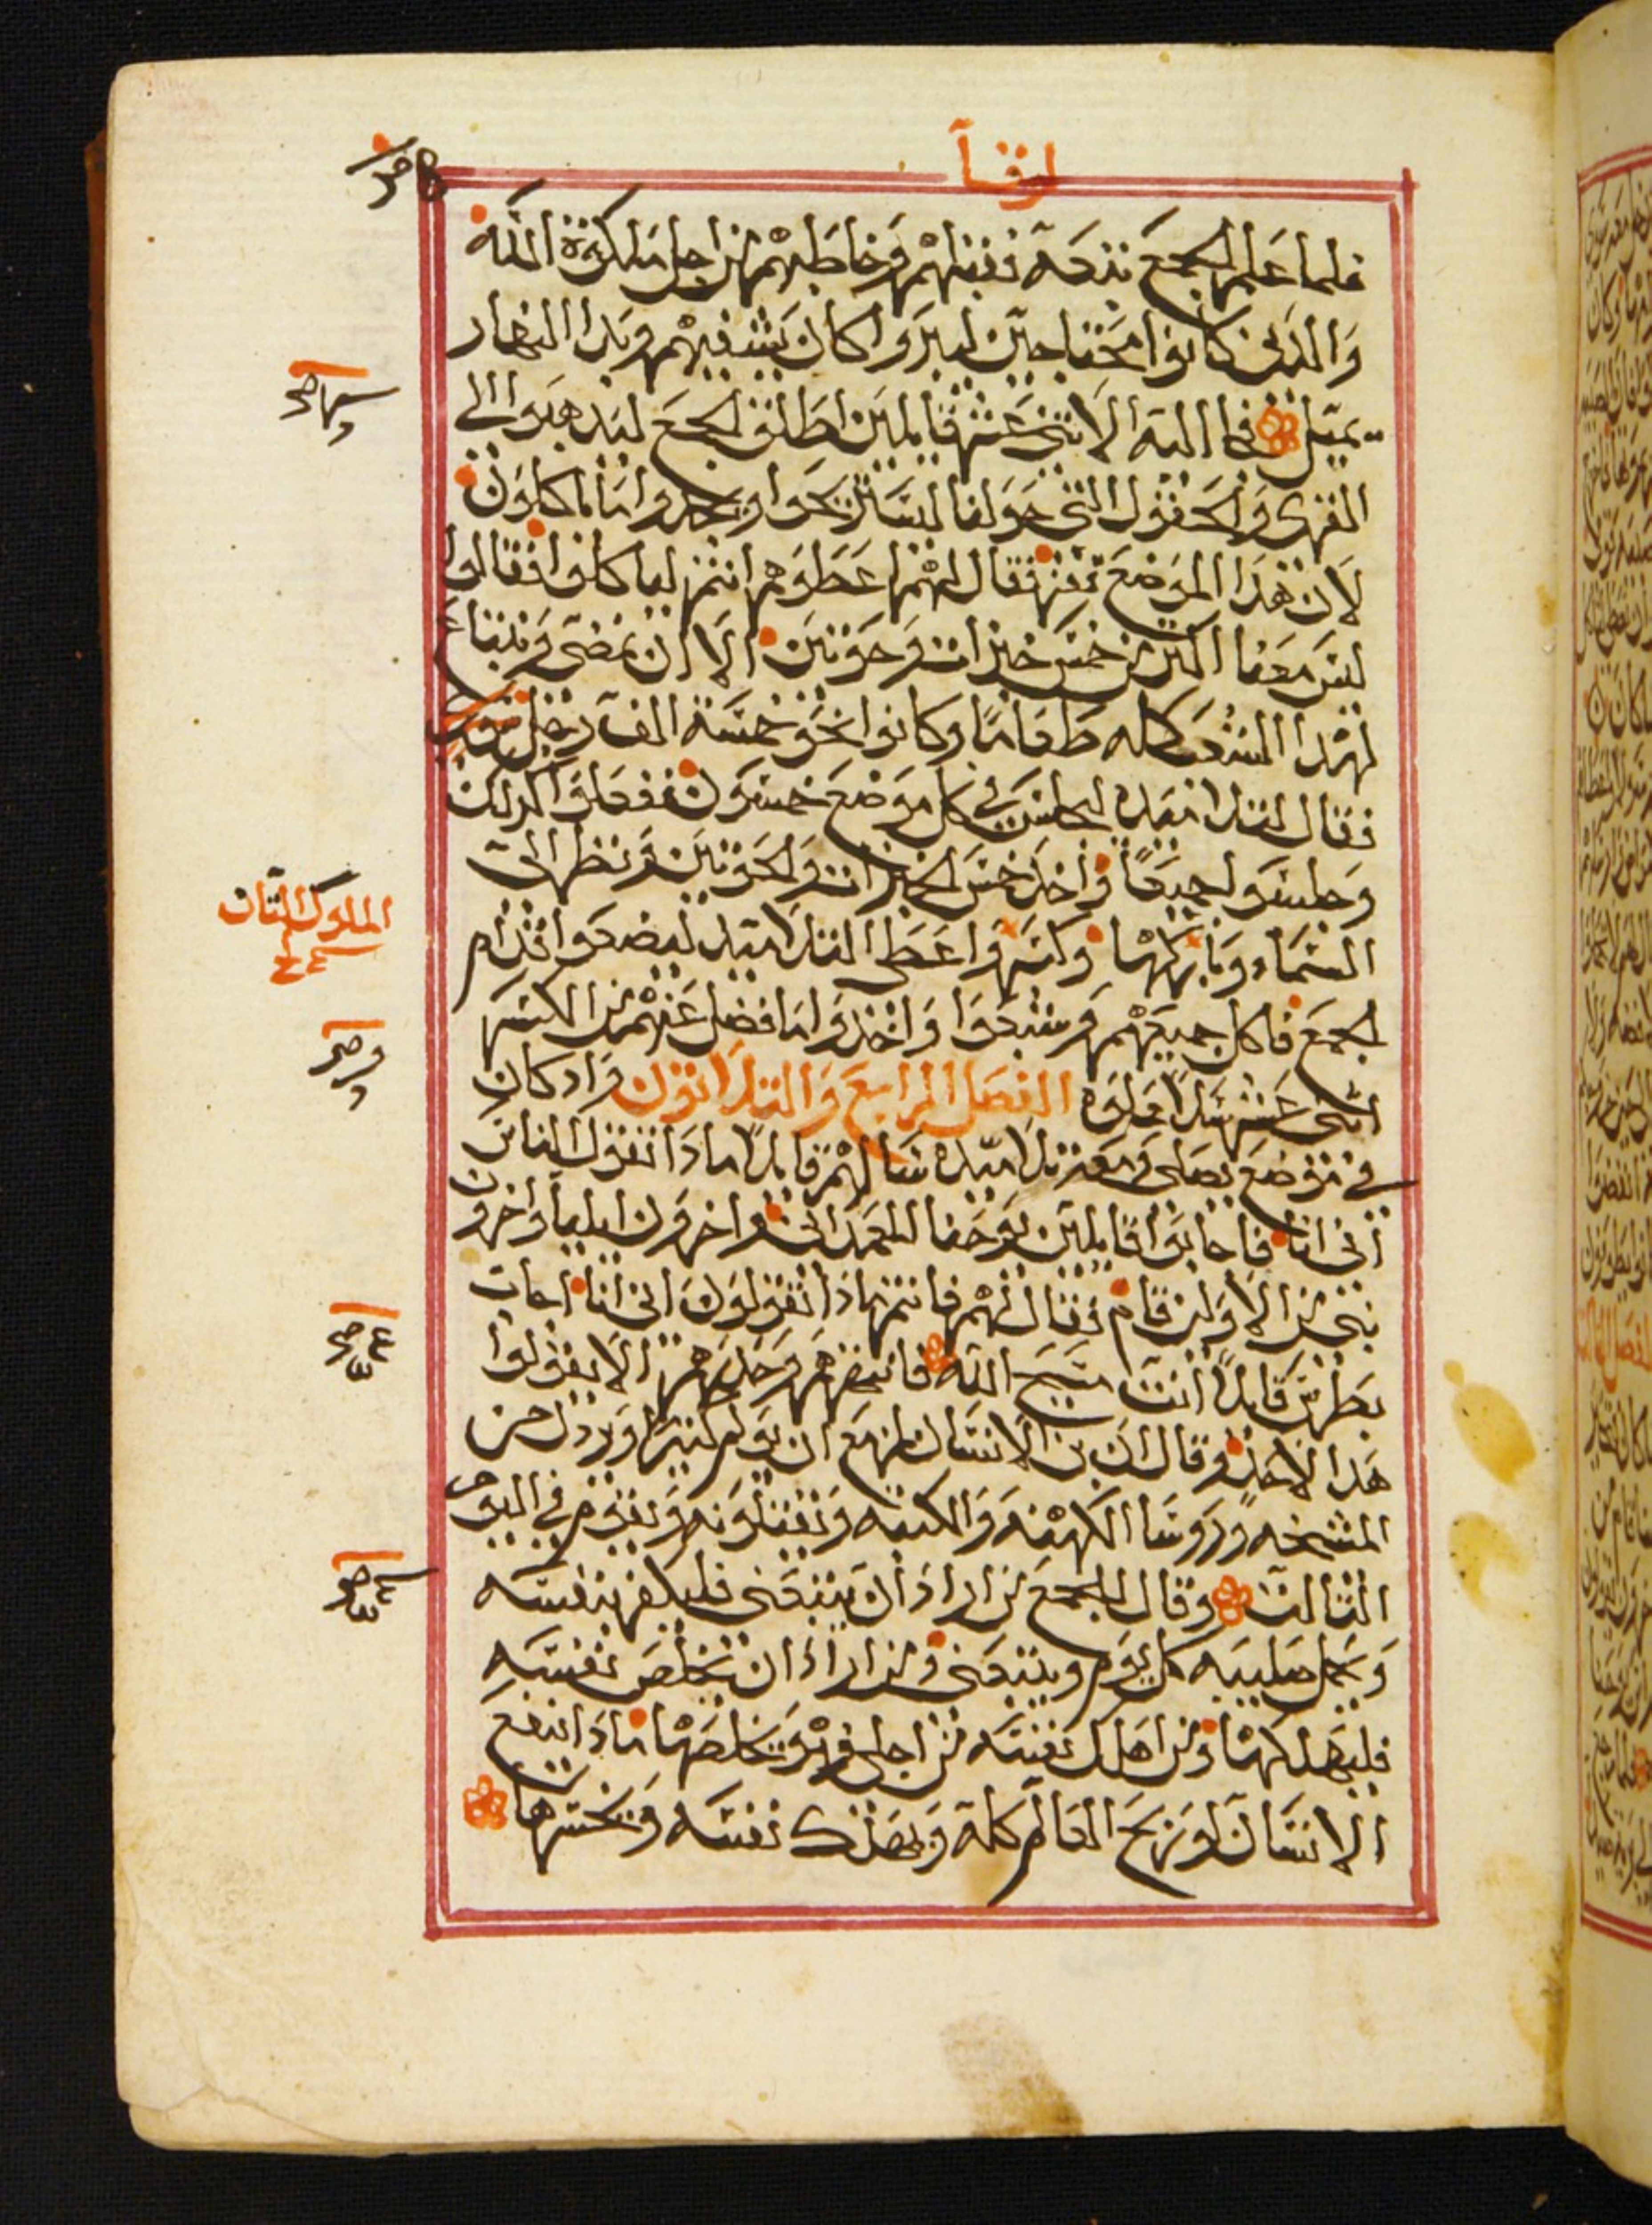 لوقا
فلما علم الجمع تبعه فقبلهم وخاطبهم من اجل ملكوة الله
والدين كانوا محتاجين ليبروا كان يشفيهم وبدا النهار
يميل فجا اليه الاثني عشر قايلين اطلق الجمع ليدهبوا الى
القرى والحقول التي حولنا ليستريحوا ويجدوا ما ياكلون
لان هدا الموضع قفر فقال لهم اعطوهم انتم لياكلوا فقالوا
ليس معنا اكتر من خمس خبزات وحوتين الا ان نمضي ونبتاع
لهدا الشعب كله طعاما وكانوا نحو خمسة الف رجل
فقال لتلاميده اجلسوا في كل موضع خمسون ففعلوا كدلك
وجلسوا جميعا واخد خمس الخبزات والحوتين ونظر الى
السماء وباركها وكسر واعطى التلاميد ليضعوا قدام
الجمع فاكل جميعهم وشبعوا واخدوا ما فضل عنهم من الكسر
اثني عشر سلا مملوه الفصل الرابع والتلاتون واد كان
في موضع يصلي ومعه تلاميده سالهم قايلا مادا تقول الناس
اني انا فاجابوا قايلين يوحنا المعمدان واخرون ايليا واخرون
نبي من الاولين قام فقال لهم فانتم مادا تقولون اني انا اجاب
بطرس قايلا انت مسيح الله فانتهرهم وحدرهم الا يقولوا
هدا لاحد وقال ان بن الانسان مزمع ان يولم كثيرا ويردل من
المشيخه وروسا الكهنه والكتبه ويقتلونه ويقوم في اليوم
التالت وقال للجمع من اراد ان يتبعني فليكفر بنفسه
ويحمل صليبه كل يوم ويتبعني ومن اراد ان يخلص نفسه
فليهلكها ومن اهلك نفسه من اجلي فهو يخلصها مادا ينفع
الانسان لو يربح العالم كله ويهلك نفسه ويخسرها